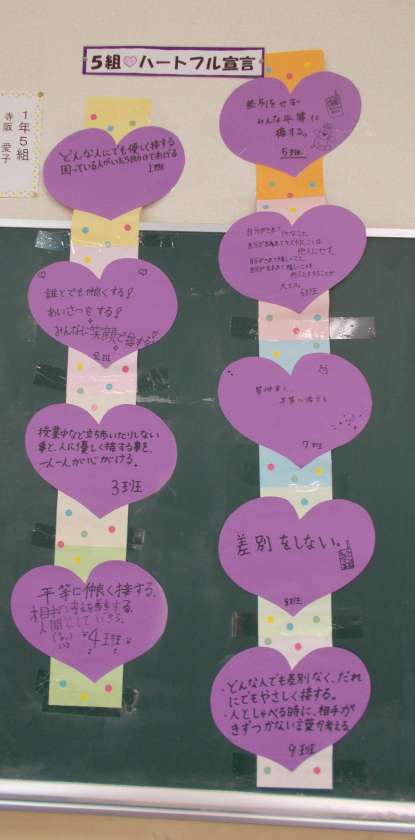 5組♡ハートフル宣言
1年5組
寺阪 愛子
どんな人にでも優しく接する
困っている人がいたら助けてあげる
1班
誰とでも仲良くする!
あいさつをする!
みんなに笑顔で接する!
2班
授業中など立ち歩いたりしない
事と、人に優しく接する事を、
一人一人が心がける。
3班
平等に仲良く接する。
相手の
人間として
4班
差別をせず
みんな平等に
接する。
5班
自分がされて
他人にせず、
自分がされて嬉しいこと、
7班
差別をしない。
8班
・どんな人でも差別なく、だれ
にでもやさしく接する。
・人としゃべる時に、相手が
きずつかない言葉を考える。
9班